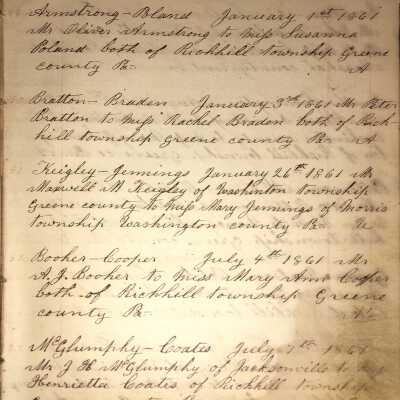 Armstrong-Bland January 1st 1861
Mr Oliver Armstrong to Miss Susanna
Poland both of Richhill township Greene
county Pa- A
Bratton-Braden January 3rd 1861 Mr Peter
Bratton to Miss Rachel Braden both of Rich-
hill township Greene county Pa- A
Keigley-Jennings January 26th 1861 Mr
Maxwell M Keigley of Washinton township
Greene county to Miss Mary Jennings of Morris
township Washington county Pa-
Booher-Cooper July 4th 1861 Mr
A.J. Booher to Miss Mary Ann Cooper
both of Richhill township Greene
county Pa-
McGlumphy-Coates July 1861
Mr J H McGlumphy of Jacksonville to
Henrietta Coates of Richhill township